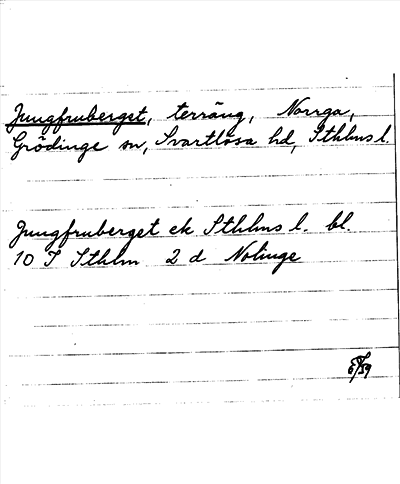 Jungfruberget, terräng, Norrga,
Grödinge sn, Svartlösa hd, Sthlms l.
Jungfruberget ek Sthlms l. bl.
10 I Sthlm 2 d Nolinge